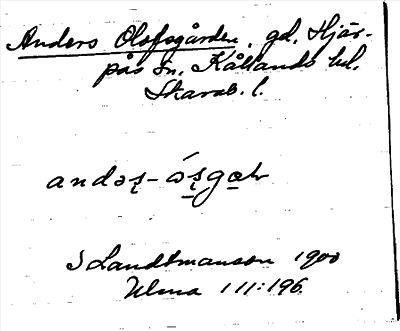 Anders Olofsgården, gd, Hjär-
pås sn. Kållands hd.
Skarab. l.
S Landtmanson 1900
Ulma 111:196